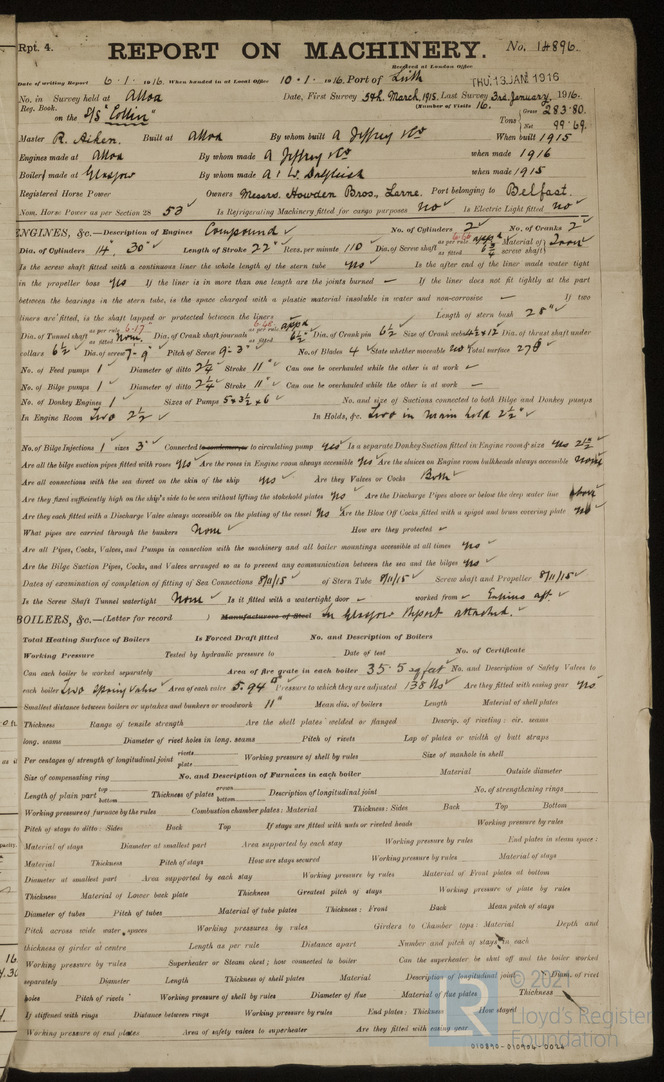 Rpt. 4. REPORT ON MACHINERY. No. 14896.
Received at London Office
Date of writing Report 6.1.1916. When handed in at Local Office 10.1.1916. Port of Leith THU. 13 JAN. 1916
No. in Survey held at Alloa Date, First Survey 5th March, 1915. Last Survey 3rd January, 1916.
Reg. Book. (Number of Visits 16.
on the S/S "Collin" Tons { Gross 283.80. Net 99.69.
Master R. Aiken. Built at Alloa By whom built A Jeffrey & Co When built 1915
Engines made at Alloa By whom made A Jeffrey & Co when made 1916
Boilers made at Glasgow By whom made A & W Dalgleish when made 1915
Registered Horse Power Owners Messrs. Howden Bros., Larne. Port belonging to Belfast.
Nom. Horse Power as per Section 28 53 Is Refrigerating Machinery fitted for cargo purposes No Is Electric Light fitted No
ENGINES, &c.—Description of Engines Compound No. of Cylinders 2 No. of Cranks 2
Dia. of Cylinders 14" 30" Length of Stroke 22" Revs. per minute 110 Dia. of Screw shaft as per rule 6.66 appd as fitted 6¾ Material of screw shaft Iron
Is the screw shaft fitted with a continuous liner the whole length of the stern tube Yes Is the after end of the liner made water tight
in the propeller boss Yes If the liner is in more than one length are the joints burned — If the liner does not fit tightly at the part
between the bearings in the stern tube, is the space charged with a plastic material insoluble in water and non-corrosive — If two
liners are fitted, is the shaft lapped or protected between the liners Length of stern bush 28"
Dia. of Tunnel shaft as per rule 6.17 as fitted None Dia. of Crank shaft journals as per rule 6.48 appd as fitted 6½" Dia. of Crank pin 6½ Size of Crank webs 4½ x 12 Dia. of thrust shaft under
collars 6½ Dia. of screw 7-9" Pitch of Screw 9-3" No. of Blades 4 State whether moveable No Total surface 27
No. of Feed pumps 1 Diameter of ditto 2¼ Stroke 11" Can one be overhauled while the other is at work —
No. of Bilge pumps 1 Diameter of ditto 2¼ Stroke 11" Can one be overhauled while the other is at work —
No. of Donkey Engines 1 Sizes of Pumps 5 x 3½ x 6 No. and size of Suctions connected to both Bilge and Donkey pumps
In Engine Room Two 2½ In Holds, &c. Two in Main hold 2½"
No. of Bilge Injections 1 sizes 3" Connected to condenser, or to circulating pump Yes Is a separate Donkey Suction fitted in Engine room & size Yes 2½
Are all the bilge suction pipes fitted with roses Yes Are the roses in Engine room always accessible Yes Are the sluices on Engine room bulkheads always accessible None
Are all connections with the sea direct on the skin of the ship Yes Are they Valves or Cocks Both
Are they fixed sufficiently high on the ship's side to be seen without lifting the stokehold plates Yes Are the Discharge Pipes above or below the deep water line above
Are they each fitted with a Discharge Valve always accessible on the plating of the vessel Yes Are the Blow Off Cocks fitted with a spigot and brass covering plate
What pipes are carried through the bunkers None How are they protected —
Are all Pipes, Cocks, Valves, and Pumps in connection with the machinery and all boiler mountings accessible at all times Yes
Are the Bilge Suction Pipes, Cocks, and Valves arranged so as to prevent any communication between the sea and the bilges Yes
Dates of examination of completion of fitting of Sea Connections 8/11/15 of Stern Tube 8/11/15 Screw shaft and Propeller 8/11/15
Is the Screw Shaft Tunnel watertight None Is it fitted with a watertight door — worked from Engines aft.
BOILERS, &c.—(Letter for record ) Manufacturers of Steel In Glasgow Report attached.
Total Heating Surface of Boilers Is Forced Draft fitted No. and Description of Boilers
Working Pressure Tested by hydraulic pressure to Date of test No. of Certificate
Can each boiler be worked separately Area of fire grate in each boiler 35.5 sq feet No. and Description of Safety Valves to
each boiler Two Spring Valves Area of each valve 5.94 □" Pressure to which they are adjusted 138 lbs Are they fitted with easing gear Yes
Smallest distance between boilers or uptakes and bunkers or woodwork 11" Mean dia. of boilers Length Material of shell plates
Thickness Range of tensile strength Are the shell plates welded or flanged Descrip. of riveting: cir. seams
long. seams Diameter of rivet holes in long. seams Pitch of rivets Lap of plates or width of butt straps
Per centages of strength of longitudinal joint rivets plate Working pressure of shell by rules Size of manhole in shell
Size of compensating ring No. and Description of Furnaces in each boiler Material Outside diameter
Length of plain part top bottom Thickness of plates crown bottom Description of longitudinal joint No. of strengthening rings
Working pressure of furnace by the rules Combustion chamber plates: Material Thickness: Sides Back Top Bottom
Pitch of stays to ditto: Sides Back Top If stays are fitted with nuts or riveted heads Working pressure by rules
Material of stays Diameter at smallest part Area supported by each stay Working pressure by rules End plates in steam space:
Material Thickness Pitch of stays How are stays secured Working pressure by rules Material of stays
Diameter at smallest part Area supported by each stay Working pressure by rules Material of Front plates at bottom
Thickness Material of Lower back plate Thickness Greatest pitch of stays Working pressure of plate by rules
Diameter of tubes Pitch of tubes Material of tube plates Thickness: Front Back Mean pitch of stays
Pitch across wide water spaces Working pressures by rules Girders to Chamber tops: Material Depth and
thickness of girder at centre Length as per rule Distance apart Number and pitch of stays in each
Working pressure by rules Superheater or Steam chest; how connected to boiler Can the superheater be shut off and the boiler worked
separately Diameter Length Thickness of shell plates Material Description of longitudinal joint Diam. of rivet
holes Pitch of rivets Working pressure of shell by rules Diameter of flue Material of flue plates Thickness
If stiffened with rings Distance between rings Working pressure by rules End plates: Thickness How stayed
Working pressure of end plates Area of safety valves to superheater Are they fitted with easing gear
© 2021
LR Lloyd's Register
Foundation
010890-010904-0026